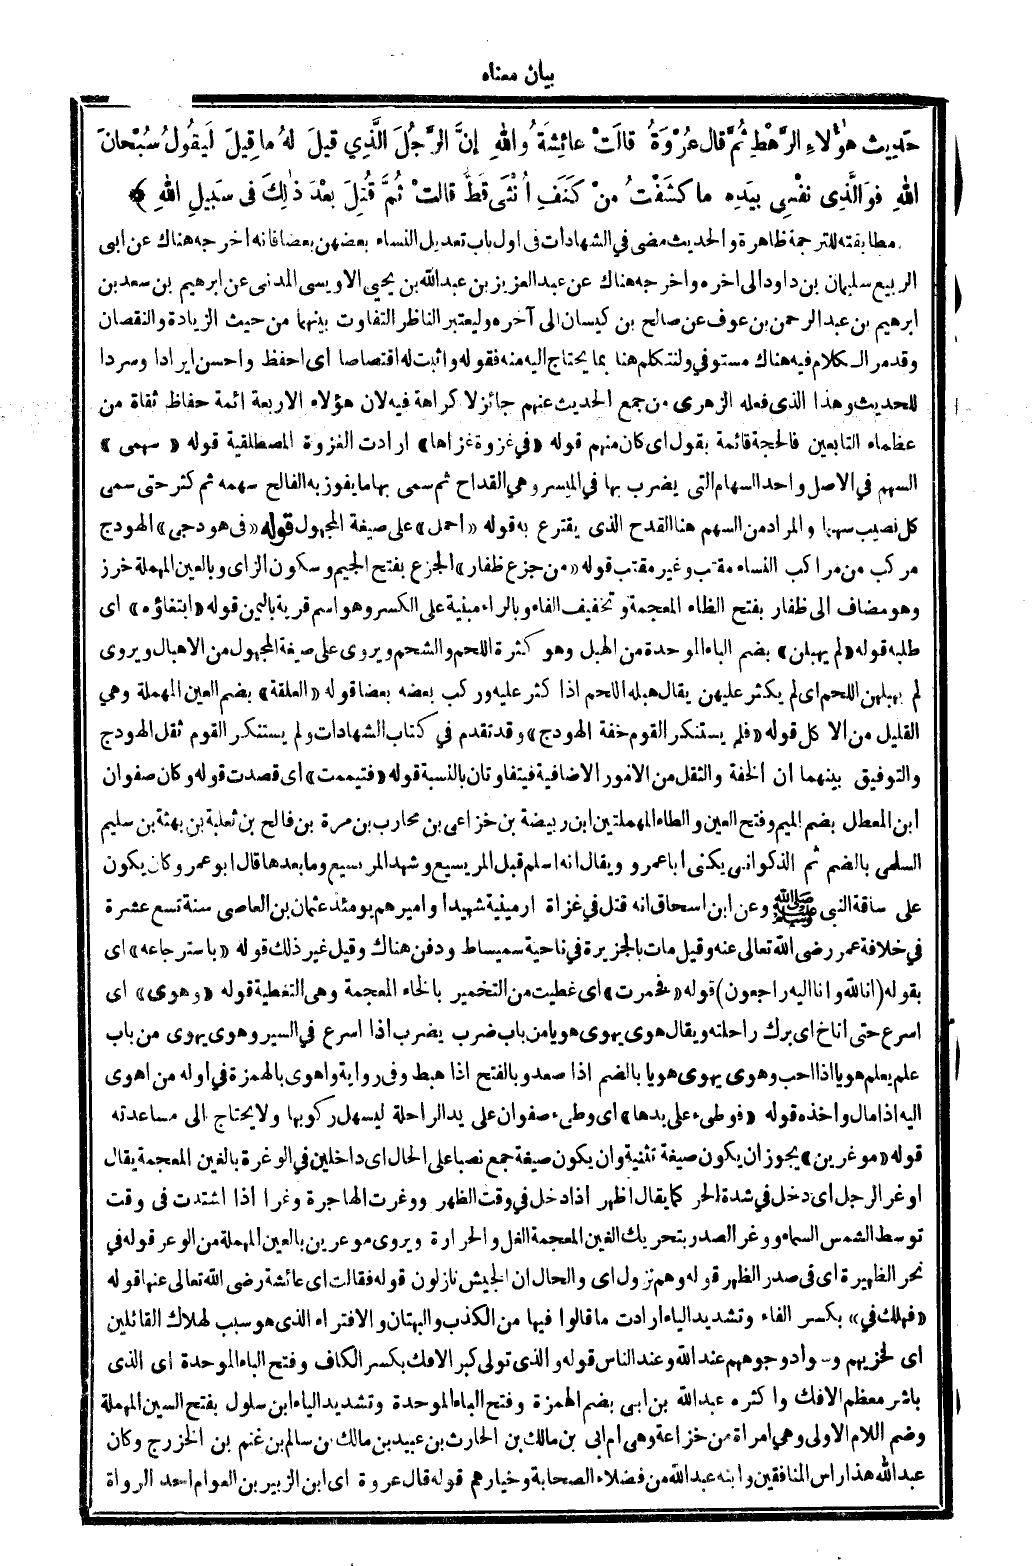 بيان معناه
حَدِيث هَؤُلَاءِ الرَّهْطِ ثُمَّ قال عُرْوَةُ قالَتْ عائِشَةُ واللهِ إنَّ الرَّجُلَ الَّذِي قيلَ لهُ ما قِيلَ لَيَقُولُ سُبْحَانَ
اللهِ فَوَالَّذِى نفْسِى بيَدِهِ ما كَشَفْتُ مِنْ كَنَفِ اُنْثَى قَطُّ قالتْ ثُمَّ قُتِلَ بعْدَ ذٰلِكَ فى سَبِيلِ اللهِ ﴾
مطابقته للترجمة ظاهرة والحديث مضى في الشهادات فى اول باب تعديل النساء بعضهن بعضا فانه اخرجه هناك عن ابى
الربيع سليمان بن داود الى اخره واخرجه هناك عن عبد العزيز بن عبد الله بن يحيى الاويسى المدنى عن ابرهيم بن سعد بن
ابرهيم بن عبد الرحمن بن عوف عن صالح بن كيسان الى آخره وليعتبر الناظر التفاوت بينهما من حيث الزيادة والنقصان
وقد مر الكلام فيه هناك مستوفي ولنتكلم هنا بما يحتاج اليه منه فقوله واثبت له اقتصاصا اى احفظ واحسن ايرادا وسردا
للحديث وهذا الذى فعله الزهرى من جمع الحديث عنهم جائز لا كراهة فيه لان هؤلاء الاربعة ائمة حفاظ ثقاة من
عظماء التابعين فالحجة قائمة بقول اى كان منهم قوله «في غزوة غزاها» ارادت الغزوة المصطلقية قوله « سهمى »
السهم في الاصل واحد السهام التى يضرب بها في الميسر وهي القداح ثم سمى بها ما يفوز به الفالج سهمه ثم كثر حتى سمى
كل نصيب سهما والمراد من السهم هنا القدح الذى يقترع به قوله «احمل» على صيغة المجهول قوله «فى هودجى» الهودج
مركب من مراكب النساء مقتب وغير مقتب قوله «من جزع ظفار» الجزع بفتح الجيم وسكون الزاى وبالعين المهملة خرز
وهو مضاف الى ظفار بفتح الظاء المعجمة وتخفيف الفاء وبالراء مبنية على الكسر وهو اسم قرية باليمن قوله «ابتغاؤه» اى
طلبه قوله «لم يهبلن» بضم الباء الموحدة من الهبل وهو كثرة اللحم والشحم ويروى على صيغة المجهول من الاهبال ويروى
لم يهبلهن اللحم اى لم يكثر عليهن يقال هبله اللحم اذا كثر عليه وركب بعضه بعضا قوله «العلقة» بضم العين المهملة وهي
القليل من الاكل قوله «فلم يستنكر القوم خفة الهودج» وقد تقدم في كتاب الشهادات ولم يستنكر القوم ثقل الهودج
والتوفيق بينهما ان الخفة والثقل من الامور الاضافية فيتفاوتان بالنسبة قوله «فتيممت» اى قصدت قوله وكان صفوان
ابن المعطل بضم الميم وفتح العين والطاء المهملتين ابن ربيضة بن خزاعى بن محارب بن مرة بن فالج بن ثعلبة بن بهثة بن سليم
السلمى بالضم ثم الذكوانى يكنى اباعمرو ويقال انه اسلم قبل المريسيع وشهد المريسيع وما بعدها قال ابو عمرو كان يكون
على ساقة النبى ﷺ وعن ابن اسحاق انه قتل في غزاة ارمينية شهيدا واميرهم يومئذ عثمان بن العاصى سنة تسع عشرة
في خلافة عمر رضى الله تعالى عنه وقيل مات بالجزيرة في ناحية سميساط ودفن هناك وقيل غير ذلك قوله «باسترجاعه» اى
بقوله (انا لله وانا اليه راجعون) قوله «فخمرت» اى غطيت من التخمير بالخاء المعجمة وهى التغطية قوله «وهوى» اى
اسرع حتى أناخ اى برك راحلته ويقال هوى يهوى هويا من باب ضرب يضرب اذا اسرع في السير وهوى يهوى من باب
علم يعلم هويا اذا احب وهوى يهوى هويا بالضم اذا صعد وبالفتح اذا هبط وفى رواية واهوى بالهمزة في اوله من اهوى
اليه اذا مال واخذه قوله «فوطىء على يدها» اى وطىء صفوان على يد الراحلة ليسهل ركوبها ولا يحتاج الى مساعدته
قوله «موغرين» يجوز ان يكون صيغة تثنية وان يكون صيغة جمع نصبا على الحال اى داخلين في الوغرة بالغين المعجمة يقال
اوغر الرجل اى دخل في شدة الحر كما يقال اظهر اذا دخل في وقت الظهر ووغرت الهاجرة وغرا اذا اشتدت فى وقت
توسط الشمس السماء ووغر الصدر بتحريك الغين المعجمة الغل والحرارة ويروى موعرين بالعين المهملة من الوعر قوله في
نحر الظهيرة اى فى صدر الظهر قوله وهم نزول اى والحال ان الجيش نازلون قوله فقالت اى عائشة رضى الله تعالى عنها قوله
«فهلك في» بكسر الفاء وتشديد الياء ارادت ما قالوا فيها من الكذب والبهتان والافتراء الذى هو سبب لهلاك القائلين
اى لخزيهم وسواد وجوههم عند الله وعند الناس قوله والذى تولى كبر الافك بكسر الكاف وفتح الباء الموحدة اى الذى
باشر معظم الافك واكثره عبدالله بن ابى بضم الهمزة وفتح الباء الموحدة وتشديد الياء ابن سلول بفتح السين المهملة
وضم اللام الاولى وهي امراة من خزاعة وهى ام ابى بن مالك بن الحارث بن عبيد بن مالك بن سالم بن غنم بن الخزرج وكان
عبد الله هذا راس المنافقين وابنه عبد الله من فضلاء الصحابة وخيارهم قوله قال عروة اى ابن الزبير بن العوام احد الرواة